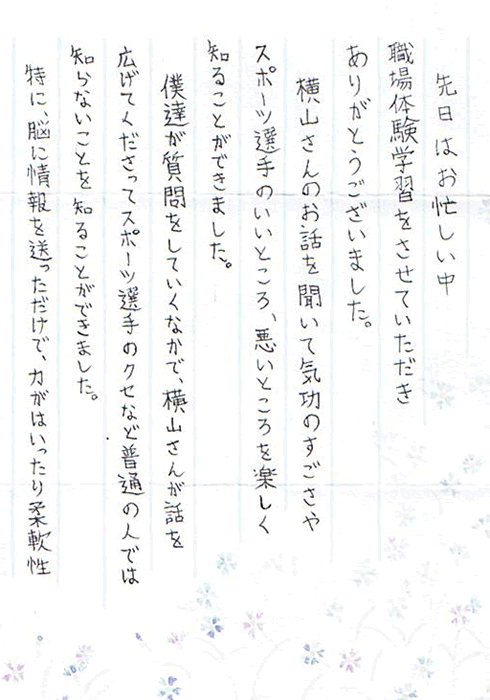 先日はお忙しい中
職場体験学習をさせていただき
ありがとうございました。
横山さんのお話を聞いて気功のすごさや
スポーツ選手のいいところ、悪いところを楽しく
知ることができました。
僕達が質問をしていくなかで、横山さんが話を
広げてくださってスポーツ選手のクセなど普通の人では
知らないことを知ることができました。
特に、脳に情報を送っただけで、力がはいったり柔軟性